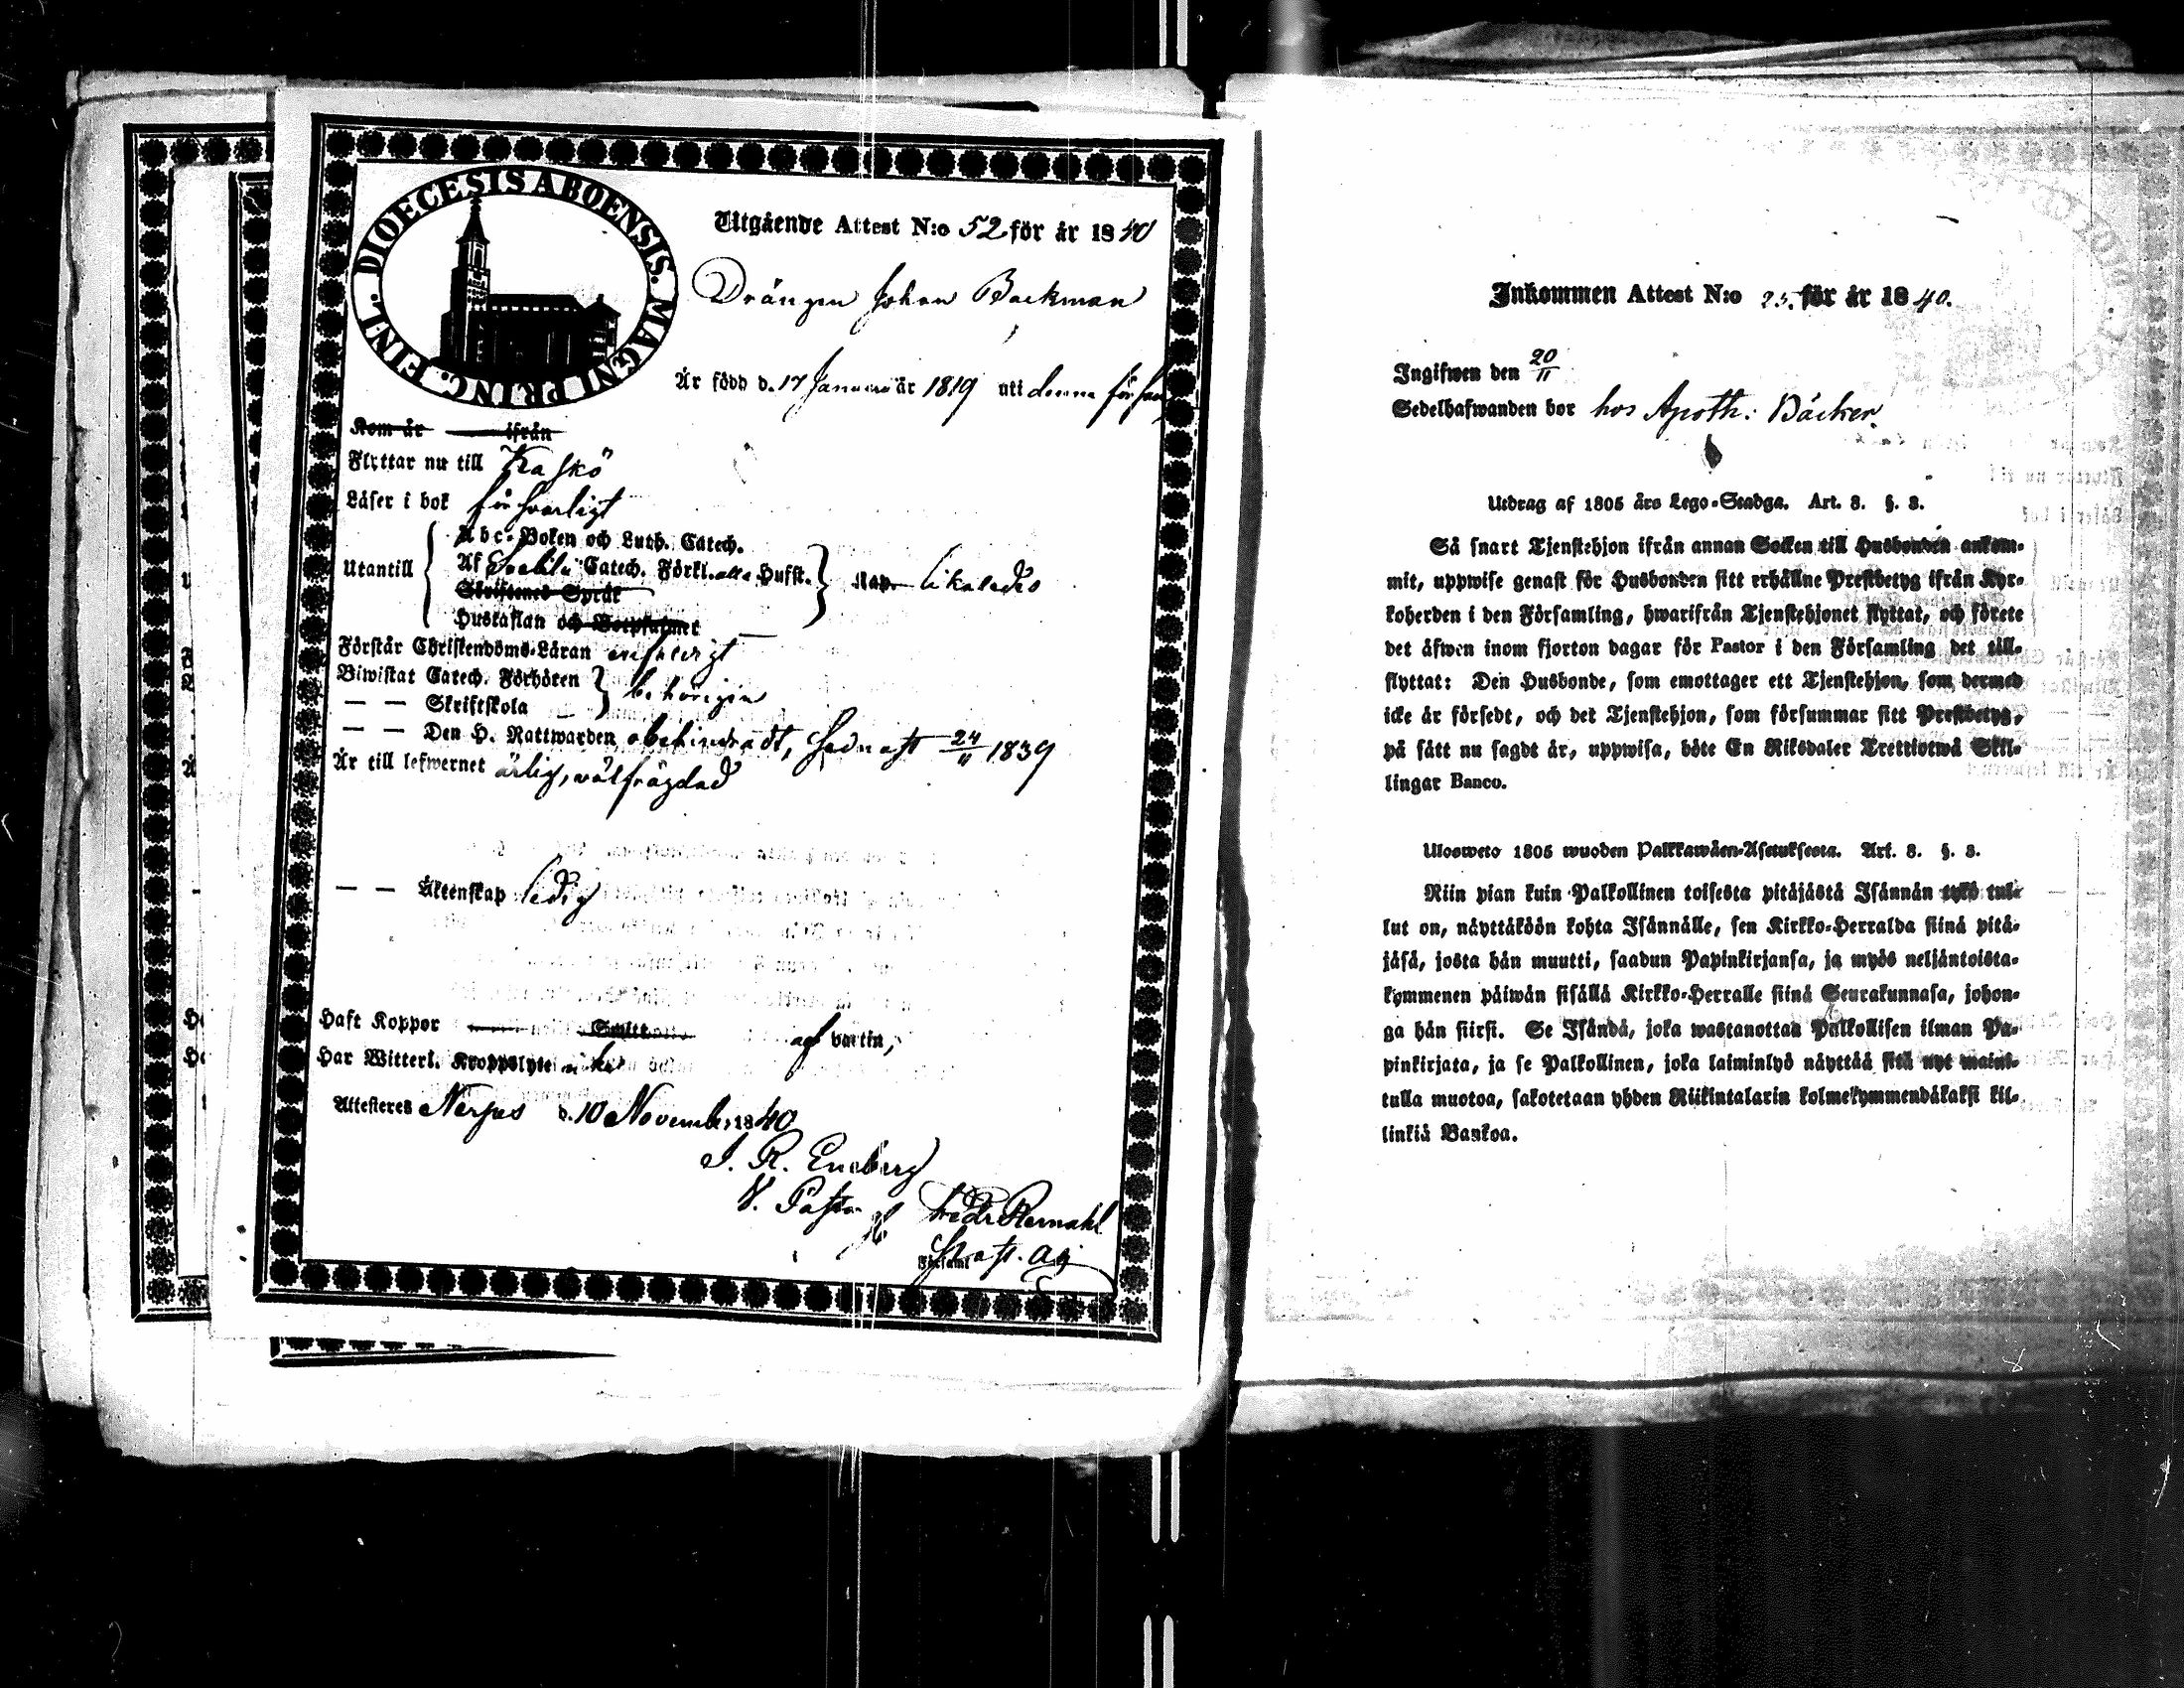 DIOECESIS ABOENSIS. MAGNI PRINC. FINL.
Utgående Attest N:o 52 för år 1840
Drängen Johan Backman
Är född d. 17 Januari år 1819 uti denna förs
Kom år ifrån
Flyttar nu till Kaskö
Läser i bok försvarligt
Utantill
Abc-Boken och Luth. Catech.
Af Svebilii Catech. Förkl. alla Hufst.
Skriftenes Språk
Hustaflan och Botpsalmer
Rap. likaledes
Förstår Christendoms-Läran enfaldigt
Biwistat Catech. Förhören
— — Skriftskola
behörigen
— — Den H. Nattwarden obehindradt, sednast 24/11 1839
Är till lefwernet ärlig, välfrägdad
— — Äktenskap ledig
Haft Koppor Smitt af vaccin,
Har Witterl. Kroppslyte
Attesteras Nerpes d. 10 November 1840
J. R. Eneberg
V. Pastor
Församl.
Inkommen Attest N:o 25. för år 1840.
Ingifwen den 20/11
Sedelhafwanden bor hos Apoth: Bäcker.
Utdrag af 1805 års Lego-Stadga. Art. 3. §. 3.
Så snart Tjenstehjon ifrån annan Socken till Husbonden ankom-
mit, uppwise genast för Husbonden sitt erhållne Prestbetyg ifrån Kyr-
koherden i den Församling, hwarifrån Tjenstehjonet flyttat, och förete
det äfwen inom fjorton dagar för Pastor i den Församling det till-
flyttat: Den Husbonde, som emottager ett Tjenstehjon, som dermed
icke är försedt, och det Tjenstehjon, som försummar sitt Prestbetyg,
på sätt nu sagdt är, uppwisa, böte En Riksdaler Trettiotwå Skil-
lingar Banco.
Ulosweto 1805 wuoden Palkkawäen-Asetuksesta. Art. 3. §. 3.
Niin pian kuin Palkollinen toisesta pitäjästä Isännän tykö tul-
lut on, näyttäköön kohta Isännälle, sen Kirkko-Herralda siinä pitä-
jäsä, josta hän muutti, saadun Papinkirjansa, ja myös neljäntoista-
kymmenen päiwän sisällä Kirkko-Herralle siinä Seurakunnasa, johon-
ga hän siirsi. Se Isändä, joka wastanottaa Palkollisen ilman Pa-
pinkirjata, ja se Palkollinen, joka laiminlyö näyttää sitä nyt maini-
tulla muotoa, sakotetaan yhden Riikintalarin kolmekymmendäkaksi kil-
linkiä Bankoa.